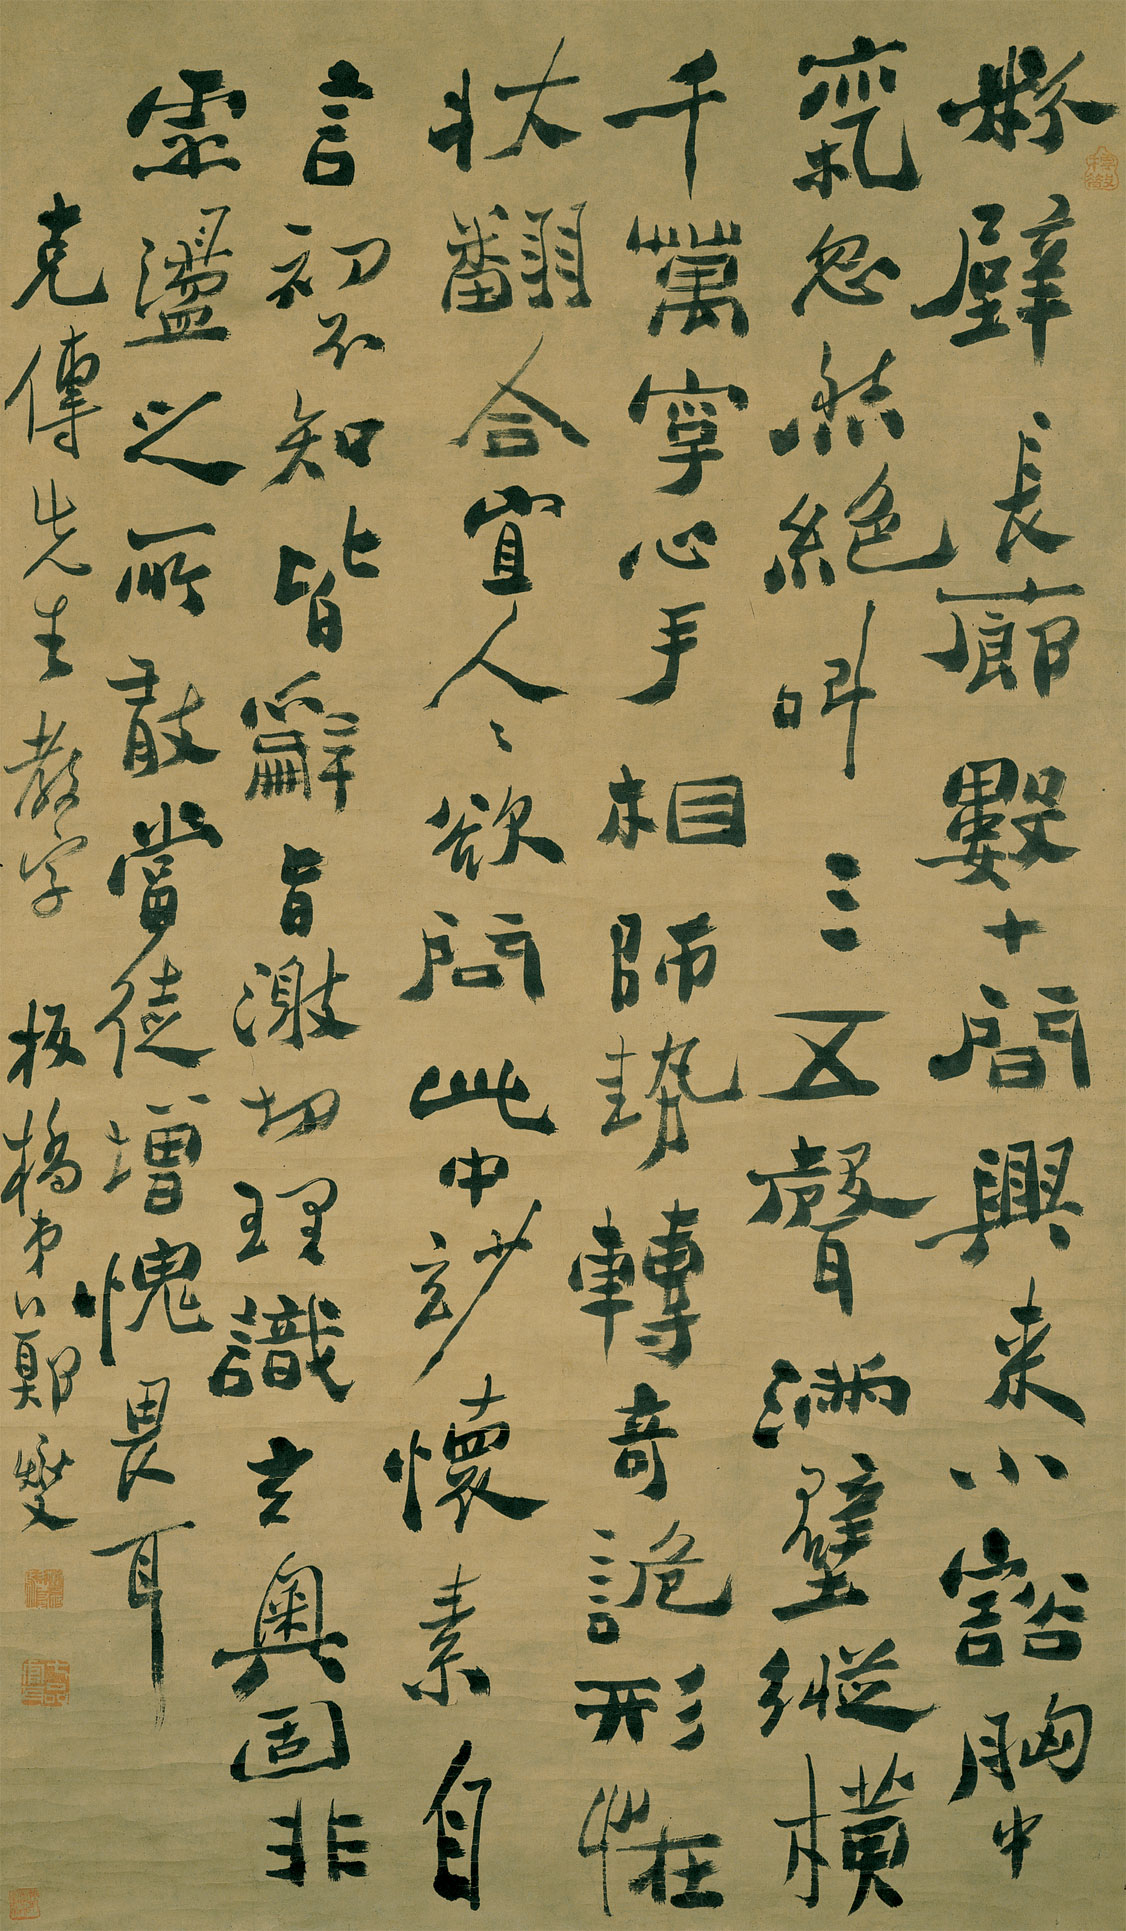 粉壁長廊數十間興来小豁胸中
氣忽然絕叫三五聲滿壁縱橫
千萬字心手相師勢轉奇詭形怪
狀翻合宜人〻欲問此中玅懷素自
言初不知皆辭旨激切理識玄奥固非
虛盪之所敢當徒增愧畏耳
克傳先生教字 板橋弟鄭燮